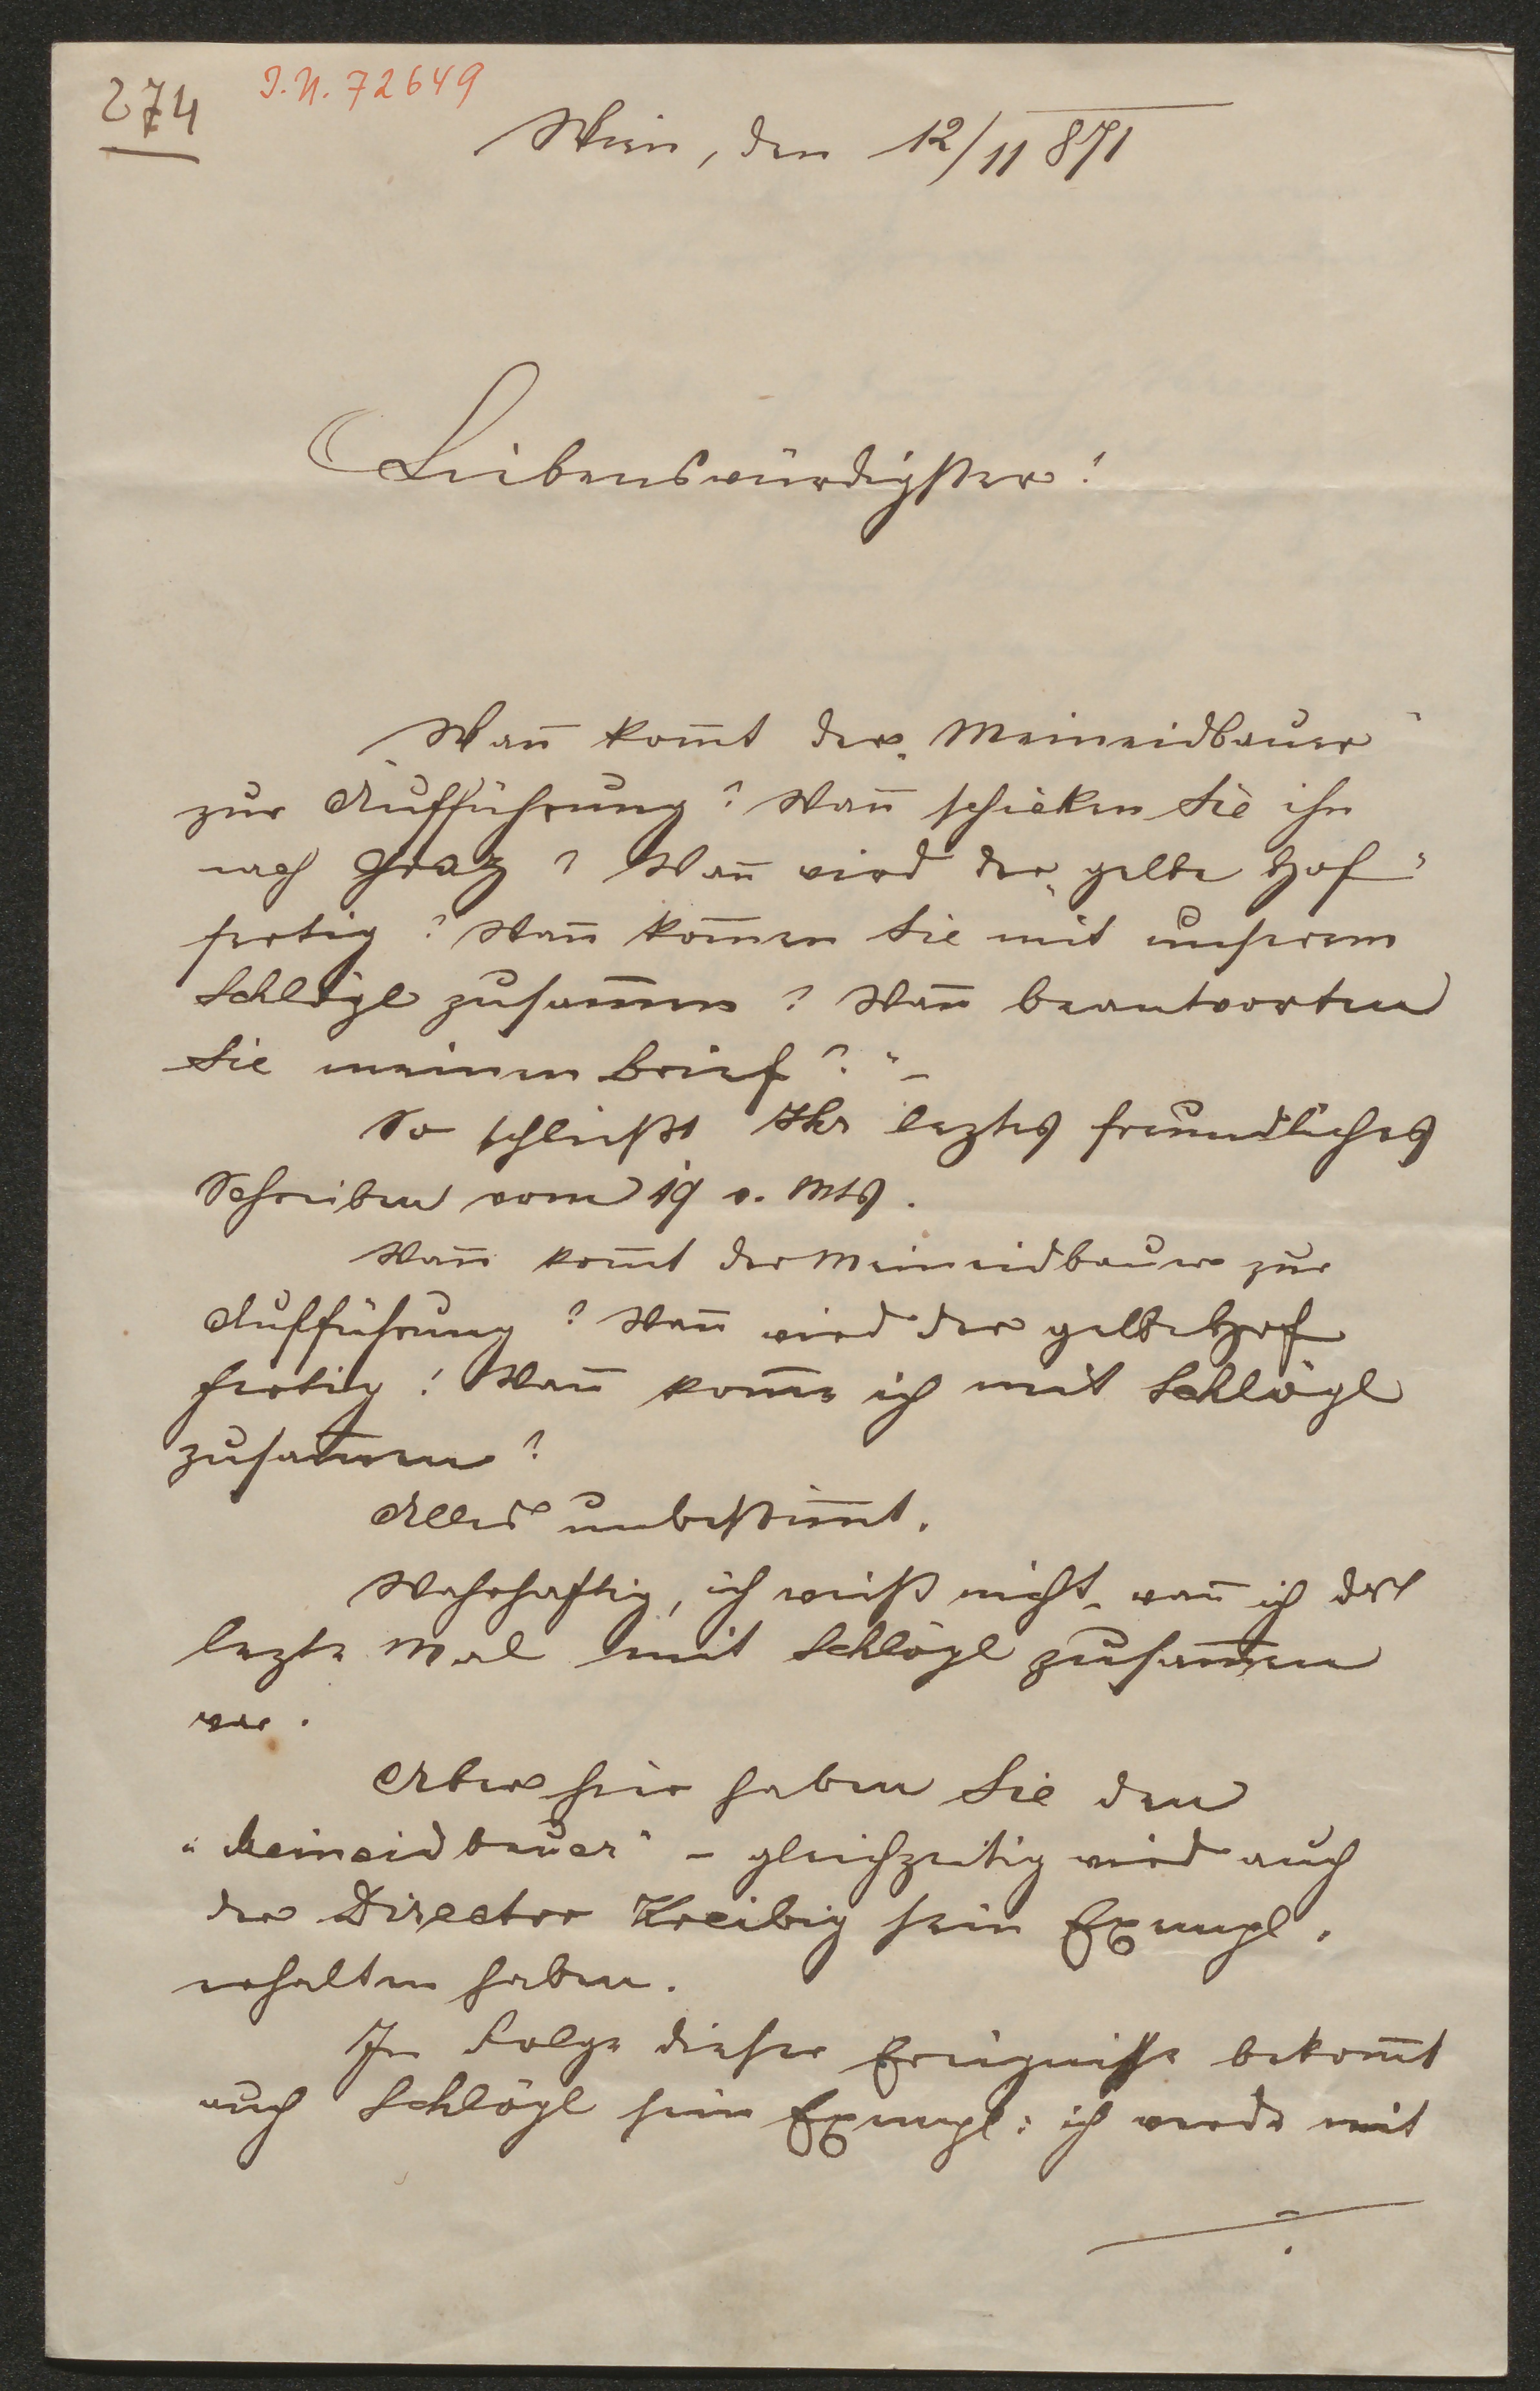 274
I.N. 72649
Wien, den 12/11 871
Liebenswürdigster!
Wan̄ kom̄t der „Meineidbauer"
zur Aufführung? Wan̄ schicken Sie ihn
nach Graz? Wan̄ wird der „gelbe Hof"
fertig? Wan̄ kom̄en Sie mit unserem
Schlögl zusam̄en? Wan̄ beantworten
Sie meinen Brief?" –
So schließt Ihr leztes freundliches
Schreiben vom 19 v. Mts.
Wan̄ kom̄t der Meineidbauer zur
Aufführung? Wan̄ wird der gelbe Hof
fertig! Wan̄ kom̄e ich mit Schlögl
zusam̄en?
Alles unbestim̄t.
Wahrhaftig, ich weiß nicht, wan̄ ich das
lezte Mal mit Schlögl zusam̄en
war.
Aber hier haben Sie den
„Meineidbauer" – gleichzeitig wird auch
der Director Kreibig sein Exempl.
erhalten haben.
In Folge dieser Ereignisse bekom̄t
auch Schlögl sein Exempl: ich werde mit